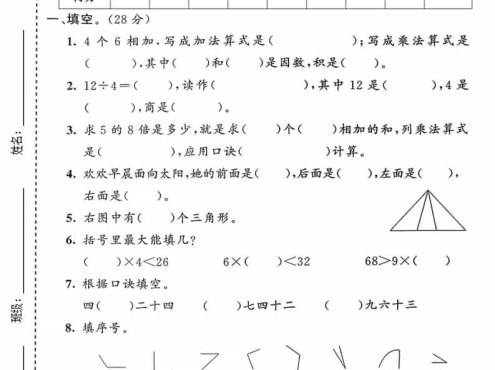 一、填空。(28分)
1. 4个6相加,写成加法算式是(        );写成乘法算式是
(    ),其中(    )和(    )是因数,积是(    )。
2. 12÷4=(    ),读作(        ),其中12是(    ),4是
(    ),商是(    )。
3. 求5的8倍是多少,就是求(    )个(    )相加的和,列乘法算式
是(        ),应用口诀(        )计算。
4. 欢欢早晨面向太阳,她的前面是(    ),后面是(    ),左面是(    ),
右面是(    )。
5. 右图中有(    )个三角形。
6. 括号里最大能填几?
(    )×4<26    6×(    )<32    68>9×(    )
7. 根据口诀填空。
四(    )二十四    (    )七四十二    (    )九六十三
8. 填序号。
姓名:
班级: